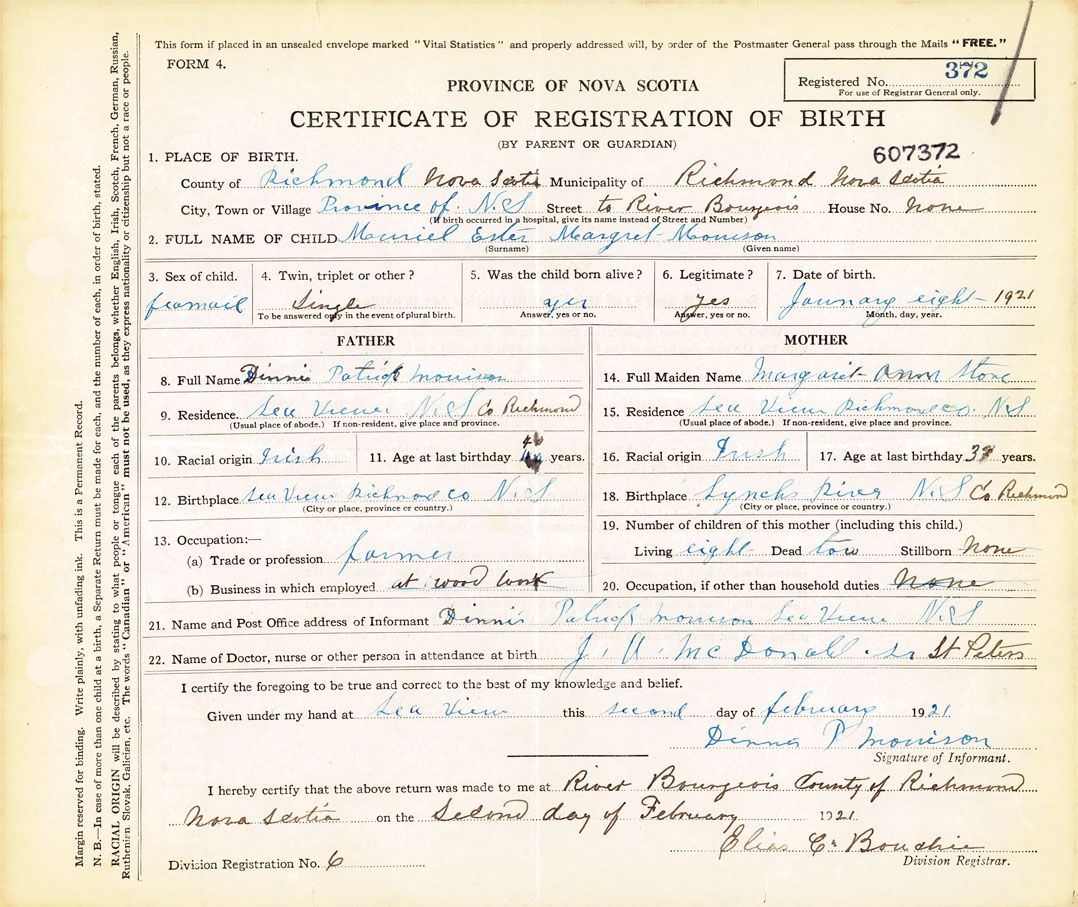 This form if placed in an unsealed envelope marked "Vital Statistics" and properly addressed will, by order of the Postmaster General pass through the Mails "FREE."
FORM 4.
Registered No. 372
For use of Registrar General only.
PROVINCE OF NOVA SCOTIA
CERTIFICATE OF REGISTRATION OF BIRTH
(BY PARENT OR GUARDIAN)
607372
1. PLACE OF BIRTH.
County of Richmond Nova Scotia Municipality of Richmond Nova Scotia
City, Town or Village Province of N.S Street to River Bourgeois House No. none
(If birth occurred in a hospital, give its name instead of Street and Number)
2. FULL NAME OF CHILD Muriel Ester Margret Morrison
(Surname) (Given name)
3. Sex of child. 4. Twin, triplet or other? 5. Was the child born alive? 6. Legitimate? 7. Date of birth.
feamail Single yes yes Jaunary eight 1921
To be answered only in the event of plural birth. Answer, yes or no. Answer, yes or no. Month, day, year.
FATHER
8. Full Name Dinnis Patrick Morrison
9. Residence. Sea View N.S Co Richmond
(Usual place of abode.) If non-resident, give place and province.
10. Racial origin Irish 11. Age at last birthday years.
12. Birthplace Sea View Richmond co N.S
(City or place, province or country.)
13. Occupation:—
(a) Trade or profession farmer
(b) Business in which employed at wood work
MOTHER
14. Full Maiden Name Margaret Ann Stone
15. Residence Sea View Richmond co. N.S
(Usual place of abode.) If non-resident, give place and province.
16. Racial origin Irish 17. Age at last birthday years.
18. Birthplace Lynchs River N.S Co. Richmond
(City or place, province or country.)
19. Number of children of this mother (including this child.)
Living eight Dead tow Stillborn None
20. Occupation, if other than household duties None
21. Name and Post Office address of Informant Dinnis Patrick Morrison Sea View N.S
22. Name of Doctor, nurse or other person in attendance at birth J. A. McDonall St Peters
I certify the foregoing to be true and correct to the best of my knowledge and belief.
Given under my hand at Sea View this second day of february 1921
Dinnis P Morrison
Signature of Informant.
I hereby certify that the above return was made to me at River Bourgeois County of Richmond
Nova Scotia on the Second day of February 1921.
Elias C. Bouchie
Division Registrar.
Division Registration No. 6
Margin reserved for binding. Write plainly, with unfading ink. This is a Permanent Record.
N. B.—In case of more than one child at a birth, a Separate Return must be made for each, and the number of each, in order of birth, stated.
RACIAL ORIGIN will be described by stating to what people or tongue each of the parents belongs, whether English, Irish, Scotch, French, German, Russian,
Ruthenian, Slovak, Galician, etc. The words "Canadian" or "American" must not be used, as they express nationality or citizenship but not a race or people.